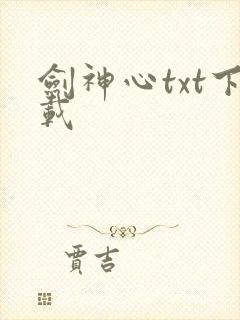 劍神心txt下
載
賈吉